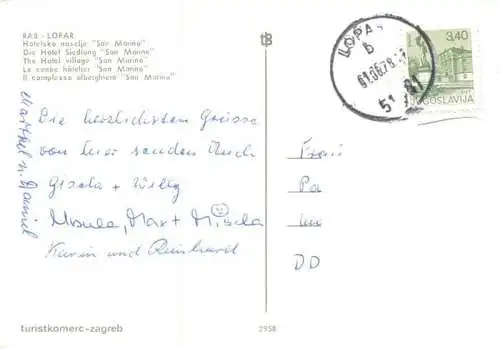 RAB - LOPAR
Hotelsko naselje "San Marino"
Die Hotel Siedlung "San Marino"
The Hotel village "San Marino"
Le centre hôtelier "San Marino"
Il complesso alberghiero "San Marino"
LOPAR
b
51
3,40
JUGOSLAVIJA
Die herzlichsten Grüsse
von hier senden Euch
Gisela + Willy
Ursula, Max + Misela
Karin und Reinhard
u. Daniel
DD
turistkomerc-zagreb
2958